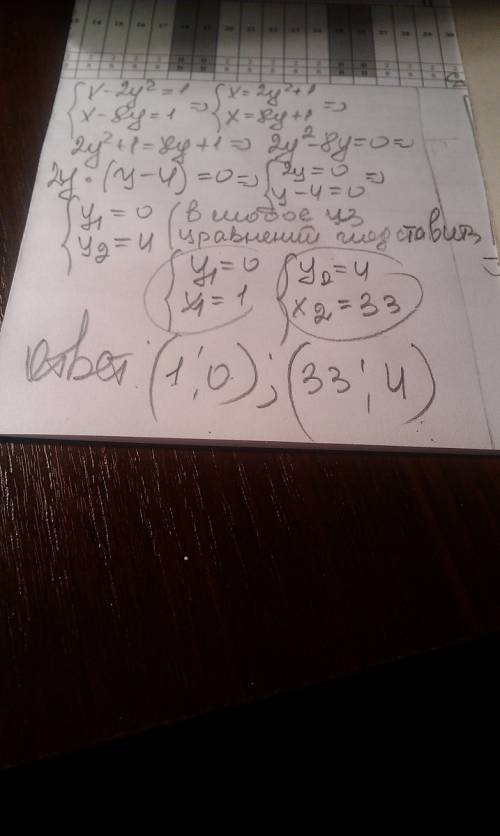 { x-2y²=1 => { x=2y²+1 =>
{ x-8y=1 { x=8y+1
2y²+1=8y+1=> 2y²-8y=0=>
2y·(y-4)=0=> { 2y=0 =>
{ y-4=0
{ y₁=0 (в любое из
{ y₂=4 уравнений подставить
{ y₁=0 { y₂=4
{ x₁=1 { x₂=33
ответ: (1;0); (33;4)